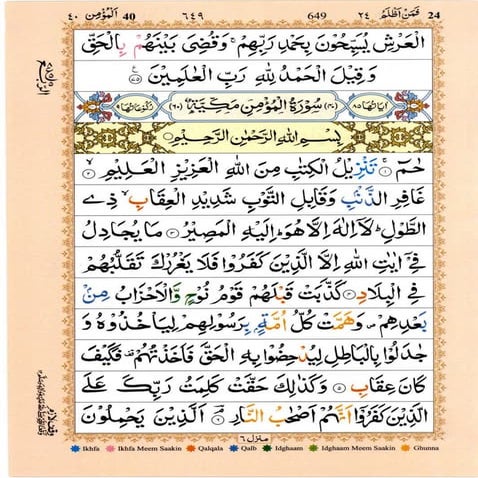 المؤمن 40 ٤٠ ٦٤٩ 649 فمن اظلم ٢٤ 24
الْعَرْشِ يُسَبِّحُوْنَ بِحَمْدِ رَبِّهِمْ ۚ وَقُضِىَ بَيْنَهُمْ بِالْحَقِّ
وَقِيْلَ الْحَمْدُ لِلّٰهِ رَبِّ الْعٰلَمِيْنَ ۟﴿۷۵﴾
اٰيَاتُهَا ٨٥ (٤٠) سُوْرَةُ الْمُؤْمِنِ مَكِّيَّةٌ (٦٠) رُكُوْعَاتُهَا ٩
بِسْمِ اللّٰهِ الرَّحْمٰنِ الرَّحِيْمِ
حٰمٓ ﴿۱﴾ تَنْزِيْلُ الْكِتٰبِ مِنَ اللّٰهِ الْعَزِيْزِ الْعَلِيْمِ ﴿۲﴾
غَافِرِ الذَّنْۢبِ وَقَابِلِ التَّوْبِ شَدِيْدِ الْعِقَابِ ۙ ذِى
الطَّوْلِ ؕ لَاۤ اِلٰهَ اِلَّا هُوَ ؕ اِلَيْهِ الْمَصِيْرُ ﴿۳﴾ مَا يُجَادِلُ
فِىْۤ اٰيٰتِ اللّٰهِ اِلَّا الَّذِيْنَ كَفَرُوْا فَلَا يَغْرُرْكَ تَقَلُّبُهُمْ
فِى الْبِلَادِ ﴿۴﴾ كَذَّبَتْ قَبْلَهُمْ قَوْمُ نُوْحٍ وَّالْاَحْزَابُ مِنْۢ
بَعْدِهِمْ ۪ وَهَمَّتْ كُلُّ اُمَّةٍۭ بِرَسُوْلِهِمْ لِيَاْخُذُوْهُ وَ
جٰدَلُوْا بِالْبَاطِلِ لِيُدْحِضُوْا بِهِ الْحَقَّ فَاَخَذْتُهُمْ ۫ فَكَيْفَ
كَانَ عِقَابِ ﴿۵﴾ وَكَذٰلِكَ حَقَّتْ كَلِمَتُ رَبِّكَ عَلَى
الَّذِيْنَ كَفَرُوْۤا اَنَّهُمْ اَصْحٰبُ النَّارِ ﴿۶﴾ اَلَّذِيْنَ يَحْمِلُوْنَ
منزل ٦
Ikhfa Ikhfa Meem Saakin Qalqala Qalb Idghaam Idghaam Meem Saakin Ghunna